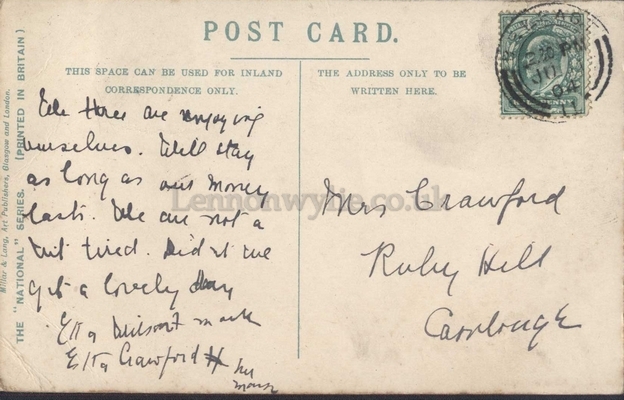 POST CARD.
THIS SPACE CAN BE USED FOR INLAND
CORRESPONDENCE ONLY.
THE ADDRESS ONLY TO BE
WRITTEN HERE.
We three are enjoying
ourselves. Will stay
as long as our money
lasts. We are not a
bit tired. Didn't we
get a lovely day
Etta
mark
Etta Crawford
her
Mrs Crawford
Ruby Hill
Carnlough
THE "NATIONAL" SERIES. (PRINTED IN BRITAIN)
Millar & Lang, Art Publishers, Glasgow and London.
Lennonwylie.co.uk
PM
04